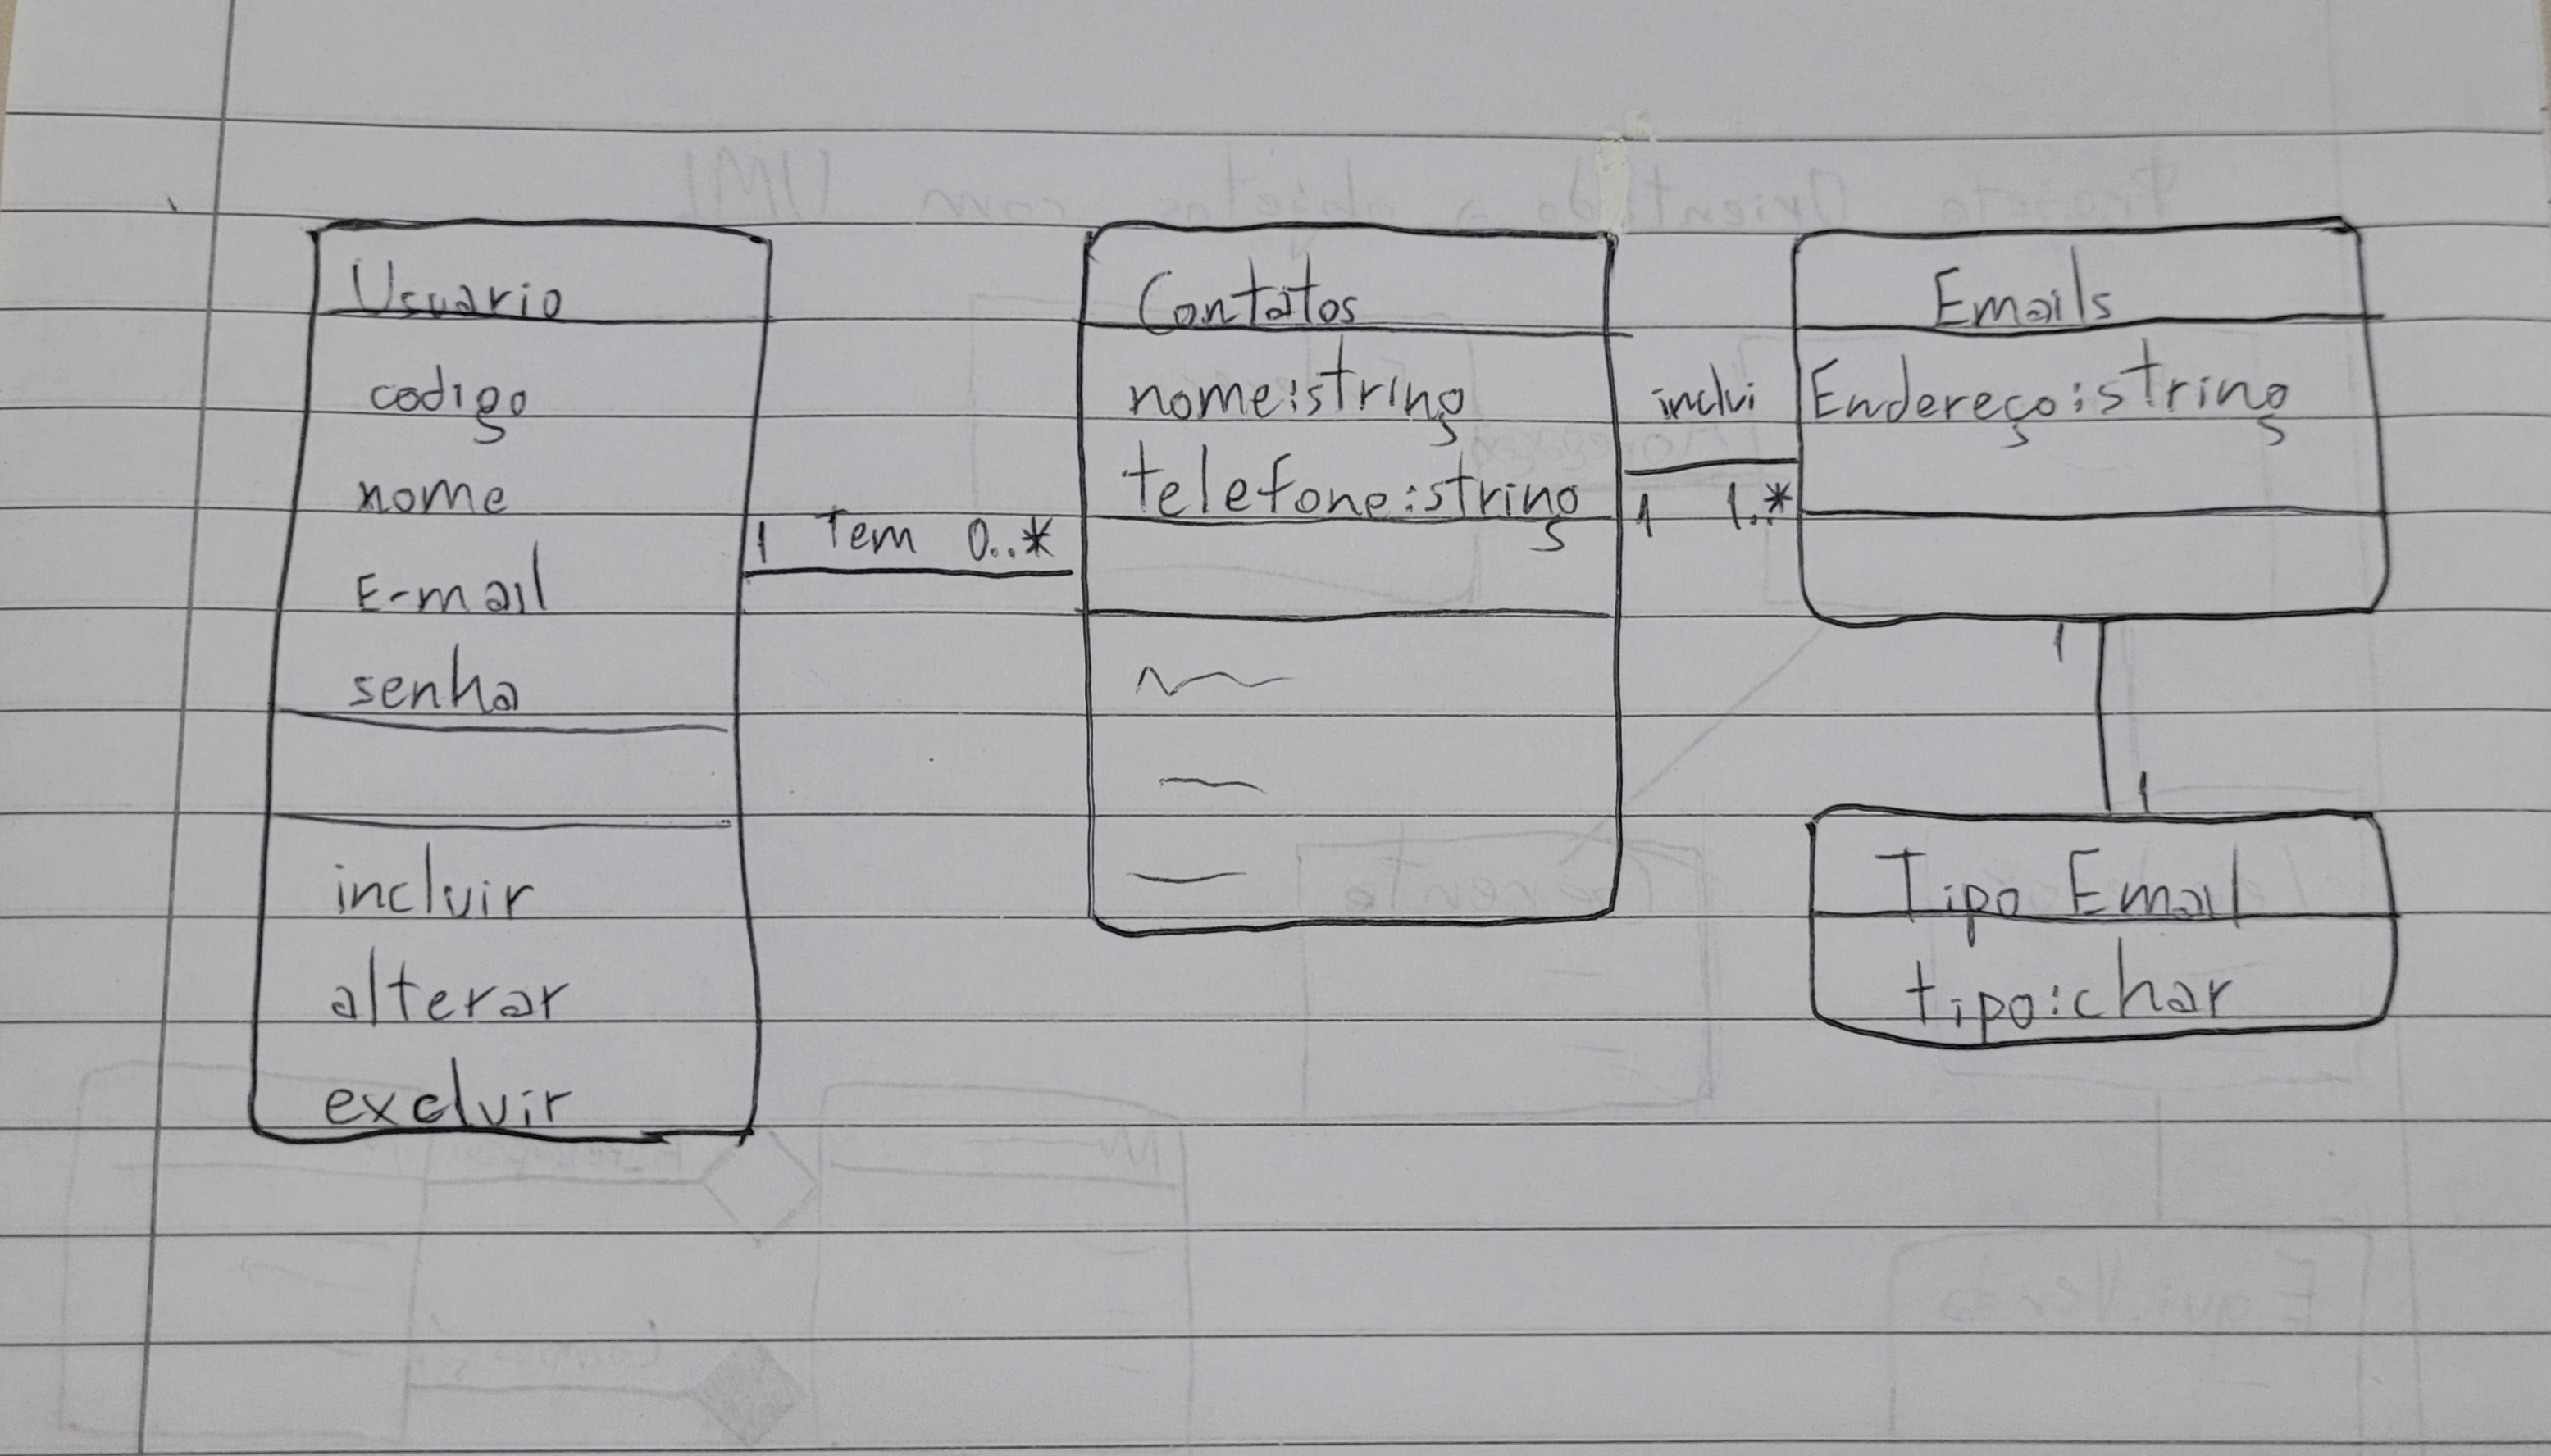 Usuario
codigo
nome
E-mail
senha
incluir
alterar
excluir
1 Tem 0..*
Contatos
nome:string
telefone:string
inclui
1 1..*
Emails
Endereço:string
1
1
Tipo Email
tipo:char